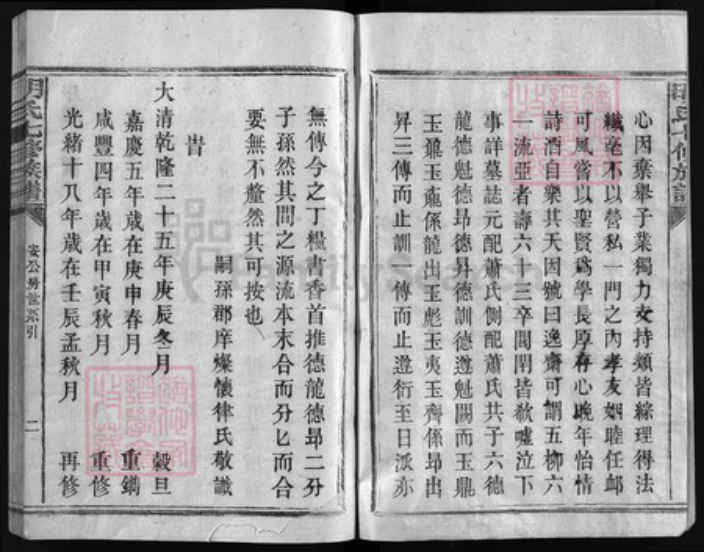 心因棄舉子業獨力支持頹皆綜理得法
纖毫不以營私一門之內孝友姻睦任卹
可風嘗以聖賢爲學長厚存心晚年怡情
詩酒自樂其天因號曰逸齋可謂五柳六
一流亞者壽六十三卒閭閈皆欷噓泣下
事詳墓誌元配蕭氏側配蕭氏共子六德
龍德魁德昻德昇德訓德遵魁闕而玉鼎
玉鼐玉鼒係龍出玉彪玉夷玉齊係昻出
昇三傳而止訓傳而止遵衍至日派亦
無傳今之丁糧書香首推德龍德昻二分
子孫然其間之源流本末合而分匕而合
要無不釐然其可按也
嗣孫郡庠燦懷律氏敬識
旹
大清乾隆二十五年庚辰冬月 穀旦
嘉慶五年歲在庚申春月 重鐫
咸豐四年歲在甲寅秋月 重修
光緒十八年歲在壬辰孟秋月 再修
氏七修族譜
安公房世系引
二